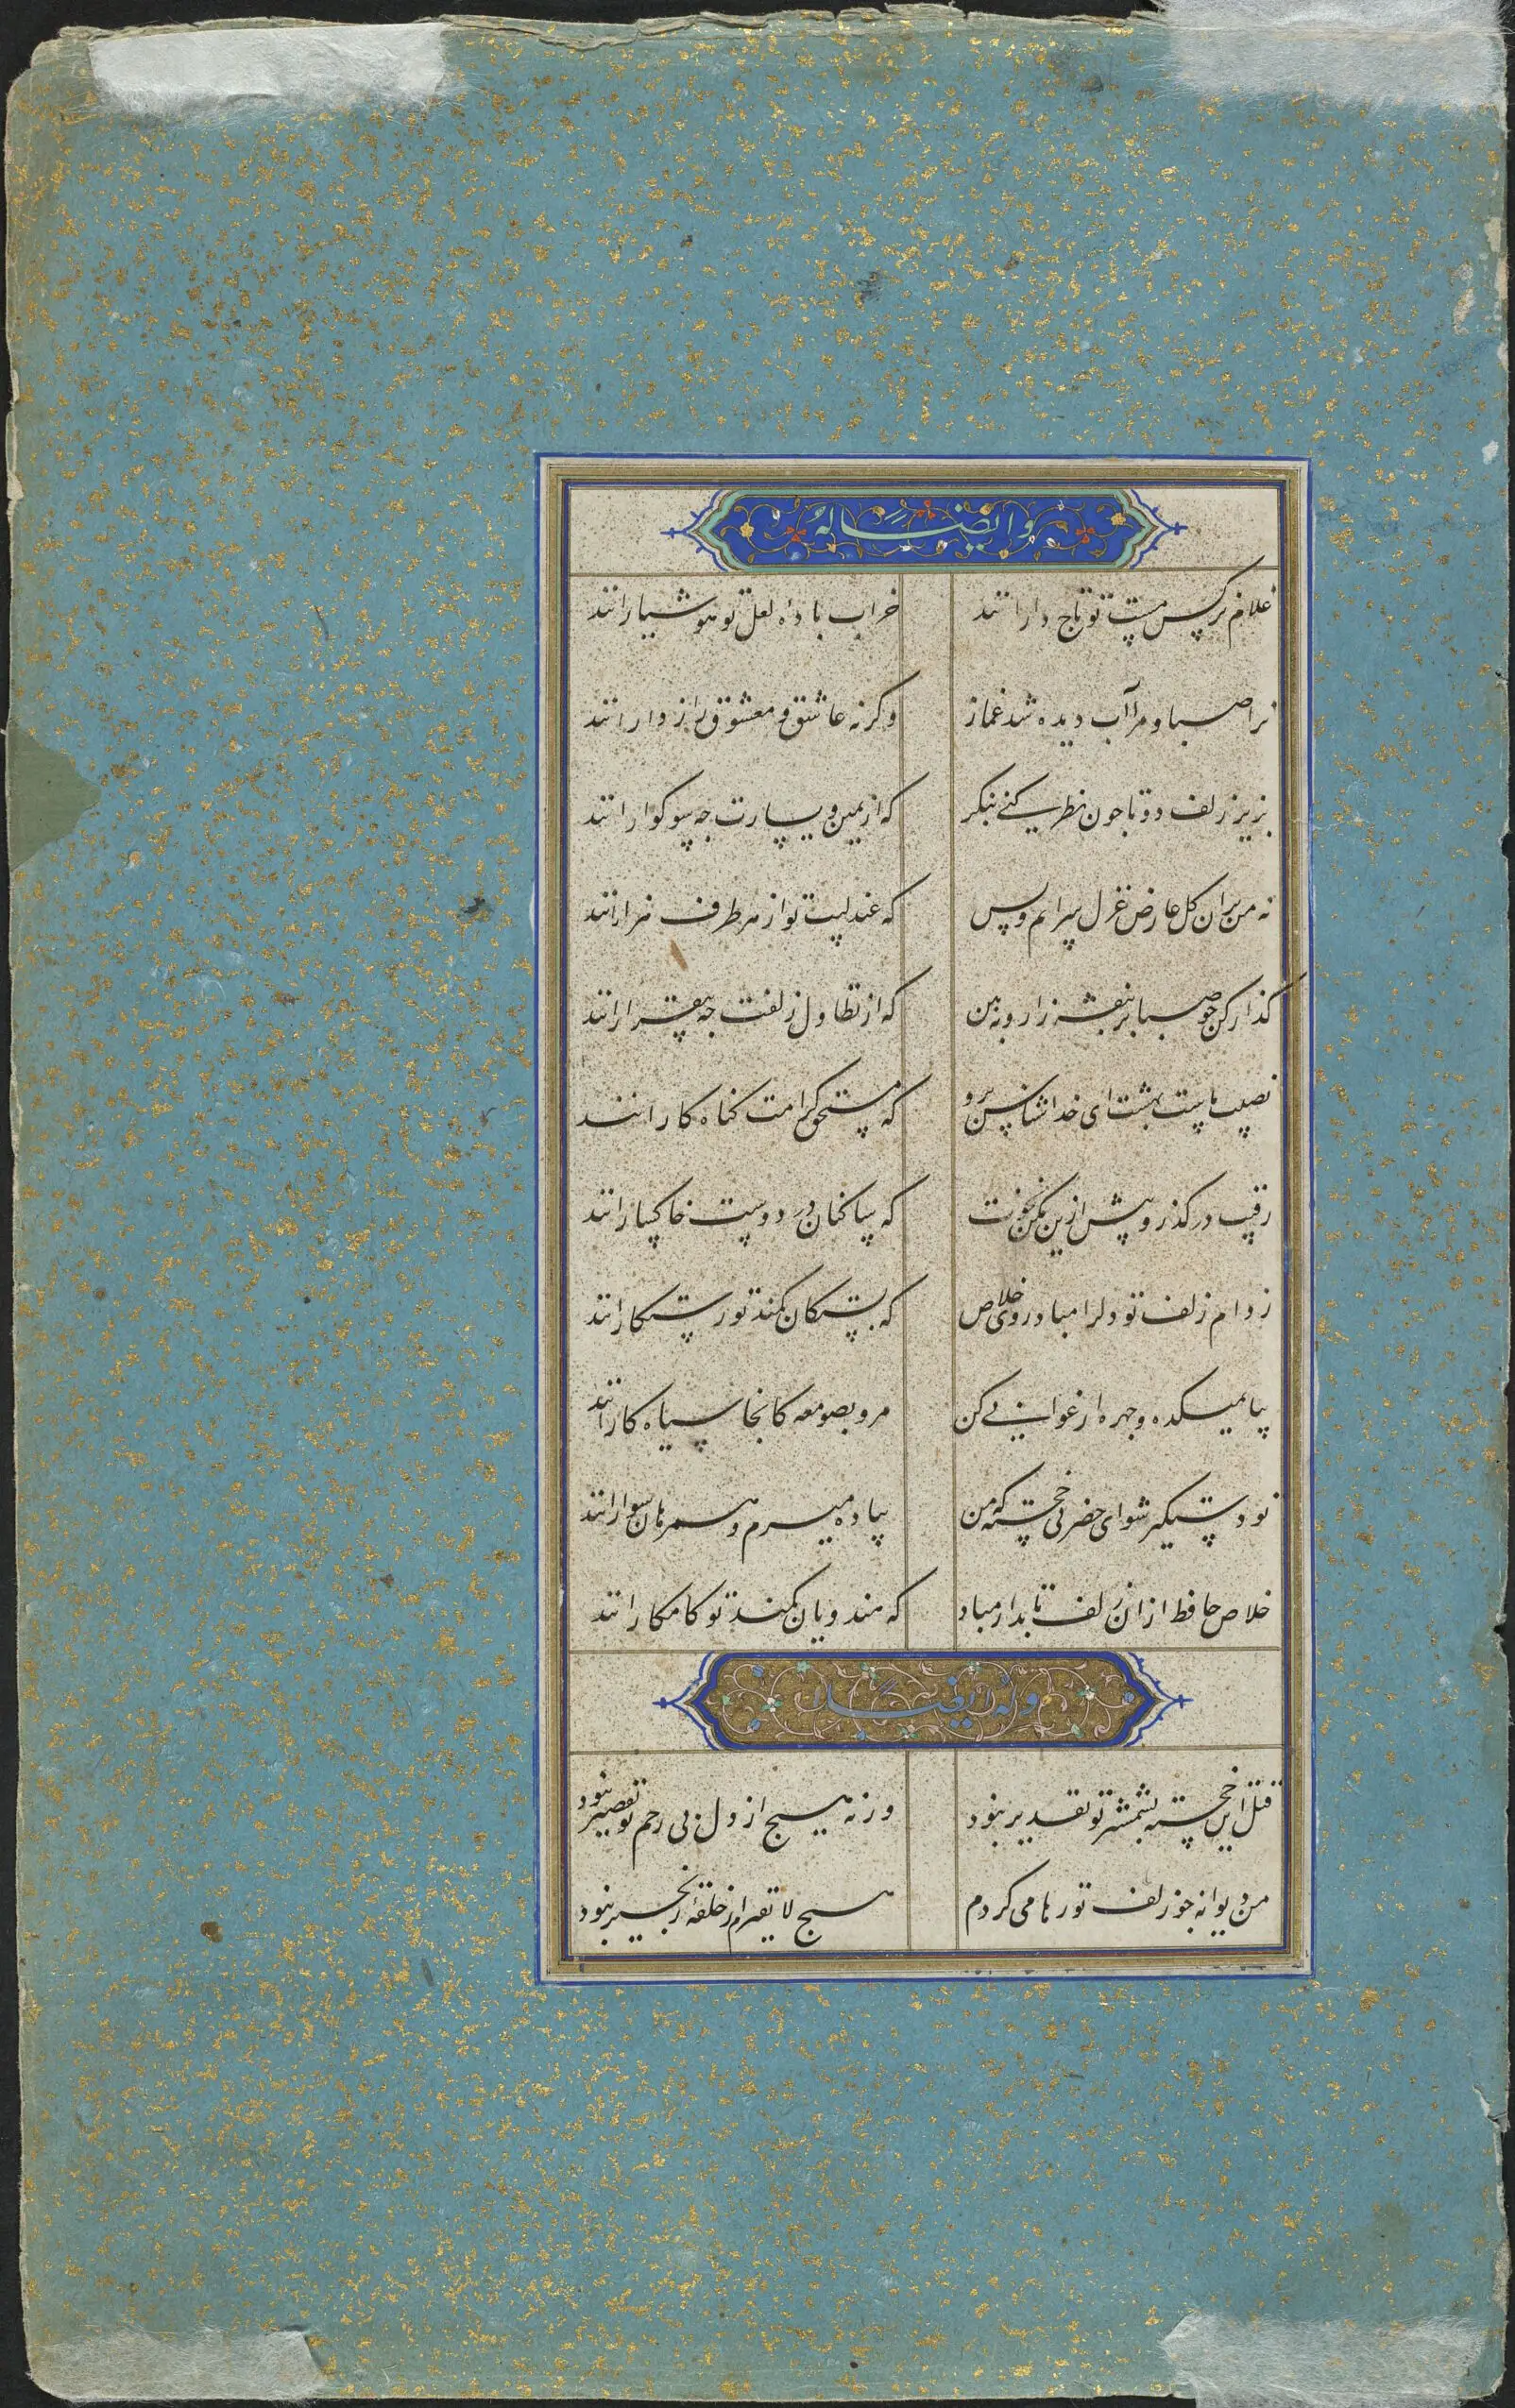 وایضاً له
غلام نرکس مست تو تاج دارانند خراب باده لعل تو هوشیارانند
ترا صبا و مرا آب دیده شد غماز وکرنه عاشق و معشوق رازدارانند
بزیر زلف دوتا جون نظر کنی بنکر که از یمین و یسارت جه سوکوارانند
نه من بران کل عارض غزل سرایم و بس که عندلیب تو از هر طرف هزارانند
کذار کن جو صبا بر بنفشه زار و ببین که از تطاول زلفت جه بیقرارانند
نصیب ماست بهشت ای خداشناس برو که مستحق کرامت کناه کارانند
رقیب درکذر و بیش ازین مکن نخوت که ساکنان در دوست خاکسارانند
ز دام زلف تو دلرا مباد روی خلاص که بستکان کمند تو رستکارانند
بیا بمیکده و جهره ارغوانی کن مرو بصومعه کانجا سیاه کارانند
تو دستکیر شو ای خضر پی خجسته که من پیاده میروم و همرهان سوارانند
خلاص حافظ ازان زلف تابدار مباد که هندویان کمند تو کامکارانند
وله ایضاً
قتل این خسته بشمشیر تو تقدیر نبود ورنه هیج از دل بی رحم تو تقصیر نبود
من دیوانه جو زلف تو رها می کردم هیج لایقترم از حلقه زنجیر نبود